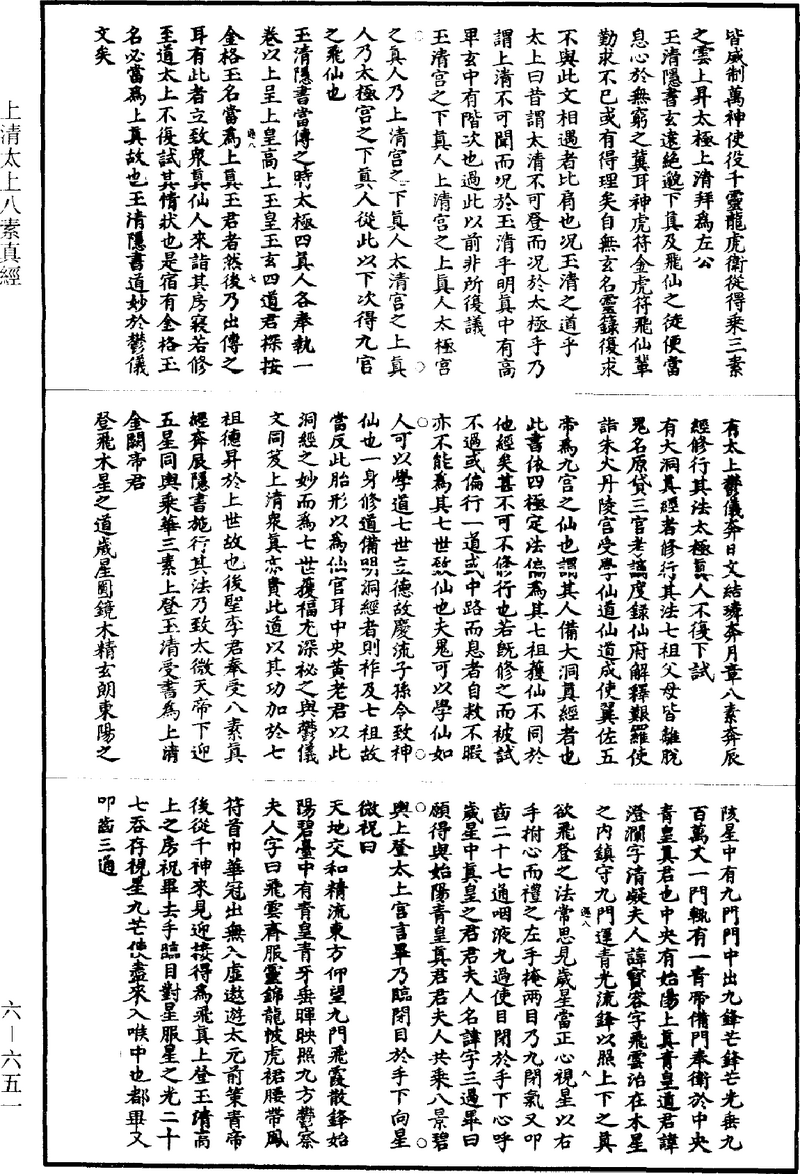 皆威制萬神使役千靈龍虎衛從得乘三素
之雲上昇太極上清拜為左公
玉清隱書玄遠絕邈下真及飛仙之徒便當
息心於無窮之冀耳神虎符金虎符飛仙輩
勤求不已或有得理矣自無玄名靈籙復求
不與此文相遇者比肩也况玉清之道乎
太上曰昔謂太清不可登而况於太極乎乃
謂上清不可聞而况於玉清乎明真中有高
卑玄中有階次也過此以前非所復議
玉清宮之下真人上清宮之上真人太極宮
之真人乃上清宮之下真人太清宮之上真
人乃太極宮之下真人從此以下次得九宮
之飛仙也
玉清隱書當傳之時太極四真人各奉執一
卷以上呈上皇高上玉皇玉玄四道君探按
金格玉名當為上真玉君者然後乃出傳之
耳有此者立致衆真仙人來詣其房寢若修
至道太上不復試其情狀也是宿有金格玉
名必當為上真故也玉清隱書道妙於鬱儀
文矣
有太上鬱儀奔日文結璘奔月章八素奔辰
經修行其法太極真人不復下試
有大洞真經者修行其法七祖父母皆離脫
鬼名原貸三官老謫度録仙府解釋艱羅使
詣朱火丹陵宮受學仙道仙道成使翼佐五
帝為九宮之仙也謂其人備大洞真經者也
此書依四極定法偏為其七祖獲仙不同於
他經矣甚不可不修行也若既修之而被試
不過或偏行一道或中路而息者自救不暇
亦不能為其七世致仙也夫鬼可以學仙如
人可以學道七世立德故慶流子孫令致神
仙也一身修道備明洞經者則祚及七祖故
當反此胎形以為仙官耳中央黄老君以此
洞經之妙而為七世獲福尤深祕之與鬱儀
文同芨上清衆真亦貴此道以其功加於七
祖德昇於上世故也後聖李君奉受八素真
經奔辰隱書施行其法乃致太微天帝下迎
五星同輿乘華三素上登玉清受書為上清
金闕帝君
登飛木星之道歲星圓鏡木精玄朗東陽之
陔星中有九門門中出九鋒芒鋒芒光垂九
百萬丈一門輒有一青帝備門奉衛於中央
青皇真君也中央有始陽上真青皇道君諱
澄瀾字清凝夫人諱寶容字飛雲治在木星
之内鎮守九門運青光流鋒以照上下之真
欲飛登之法常思見歲星當正心視星以右
手拊心而禮之左手掩兩目乃九閉氣又叩
齒二十七通咽液九過使目閉於手下心呼
歲星中真皇之君君夫人名諱字三過畢曰
願得與始陽青皇真君君夫人共乘八景碧
輿上登太上宮言畢乃臨閉目於手下向星
微祝曰
天地交和精流東方仰望九門飛霞散鋒始
陽碧臺中有青皇青牙垂暉映照九方鬱察
夫人字曰飛雲齊服靈錦龍帔虎裙腰帶鳳
符首巾華冠出無入虛遨遊太元前策青帝
後從千神來見迎接得為飛真上登玉清高
上之房祝畢去手臨目對星服星之光二十
七吞存視星九芒使盡來入喉中也都畢又
叩齒三通
上清太上八素真經
六－六五一